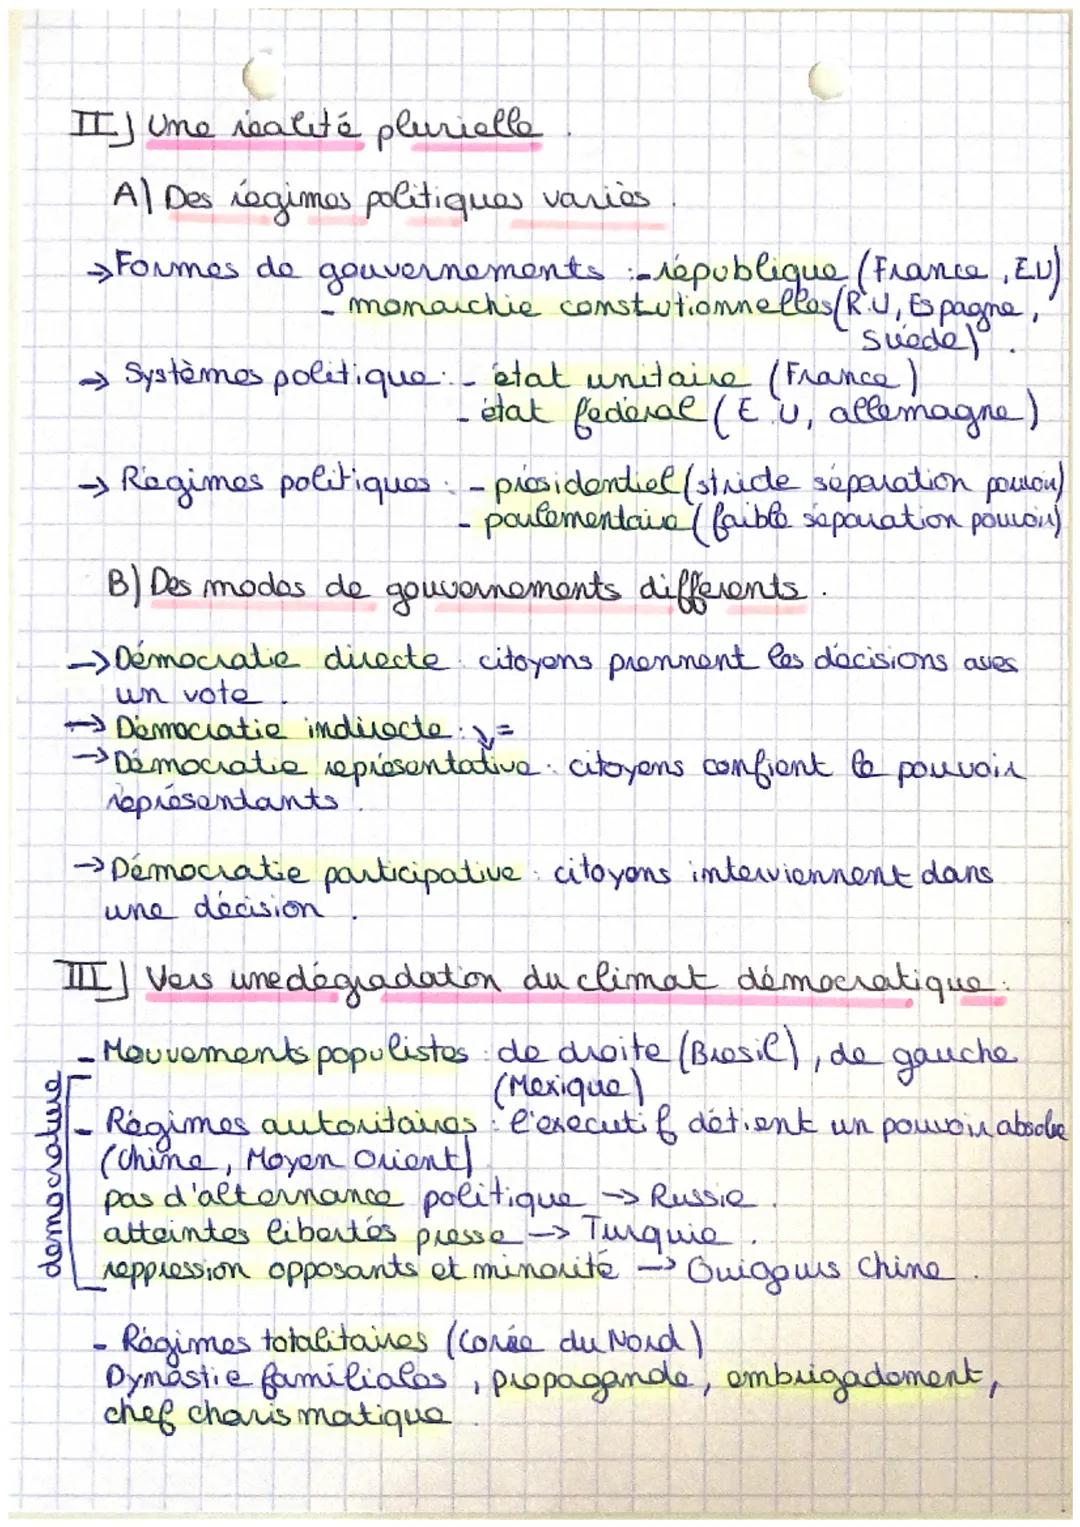 II) Une réalité plurielle.
A) Des régimes politiques variés.
→ Formes de gouvernements : - république (France, EU)
- monarchie constutionnelles (R.U, Espagne,
suède).
→ Systèmes politique : - état unitaire (France)
- état fédéral (E.U, allemagne)
→ Régimes politiques : - présidentiel (stricte séparation pouvoir)
- parlementaire (faible séparation pouvoir)
B) Des modes de gouvernements différents.
→ Démocratie directe : citoyens prennent les décisions aves
un vote.
→ Démocratie indirecte : ↓ =
→ Démocratie représentative : citoyens confient le pouvoir
représentants.
→ Démocratie participative : citoyens interviennent dans
une décision.
III) Vers une dégradation du climat démocratique :
- Mouvements populistes : de droite (Brésil), de gauche
(Mexique)
- Régimes autoritaires : l'exécutif détient un pouvoir absolue
(Chine, Moyen Orient)
pas d'alternance politique → Russie.
atteintes libertés presse → Turquie.
reppression opposants et minorité → Ouigours Chine.
democrature
- Régimes totalitaires (Corée du Nord)
Dynastie familiales, propagande, embrigadement,
chef charismatique.